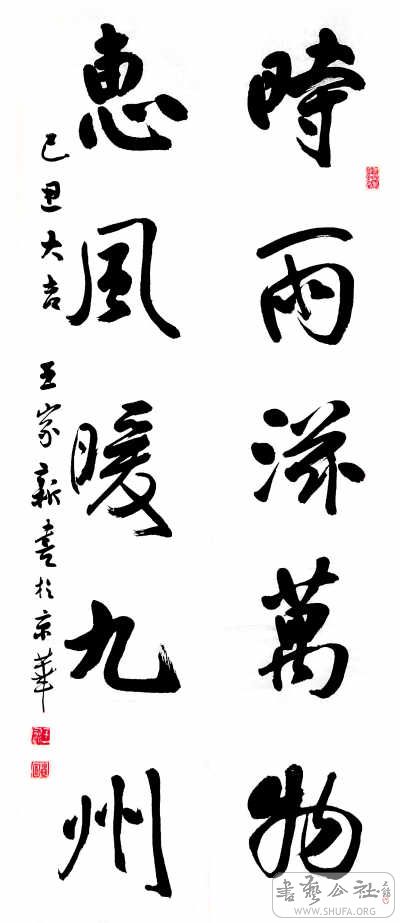 時雨滋萬物
惠風暖九州
己丑大吉 王家新書於京華
書藝公社
WWW.SHUFA.ORG